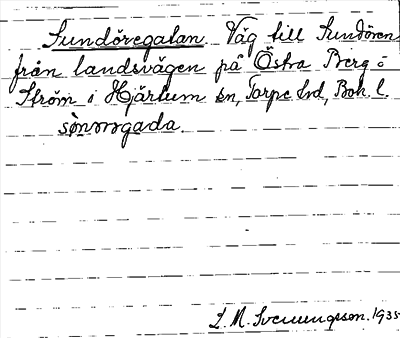 Sundöregatan Väg till Sundören
från landsvägen på Östra Berg-
Ström i Hjärtum sn, Torpe hd, Boh. l.
L. M. Svenungsson. 1935